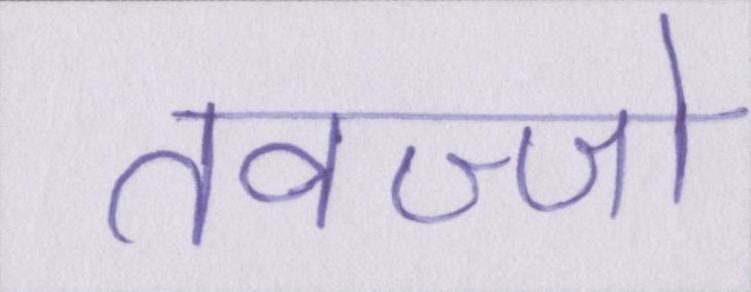 तवज्जो